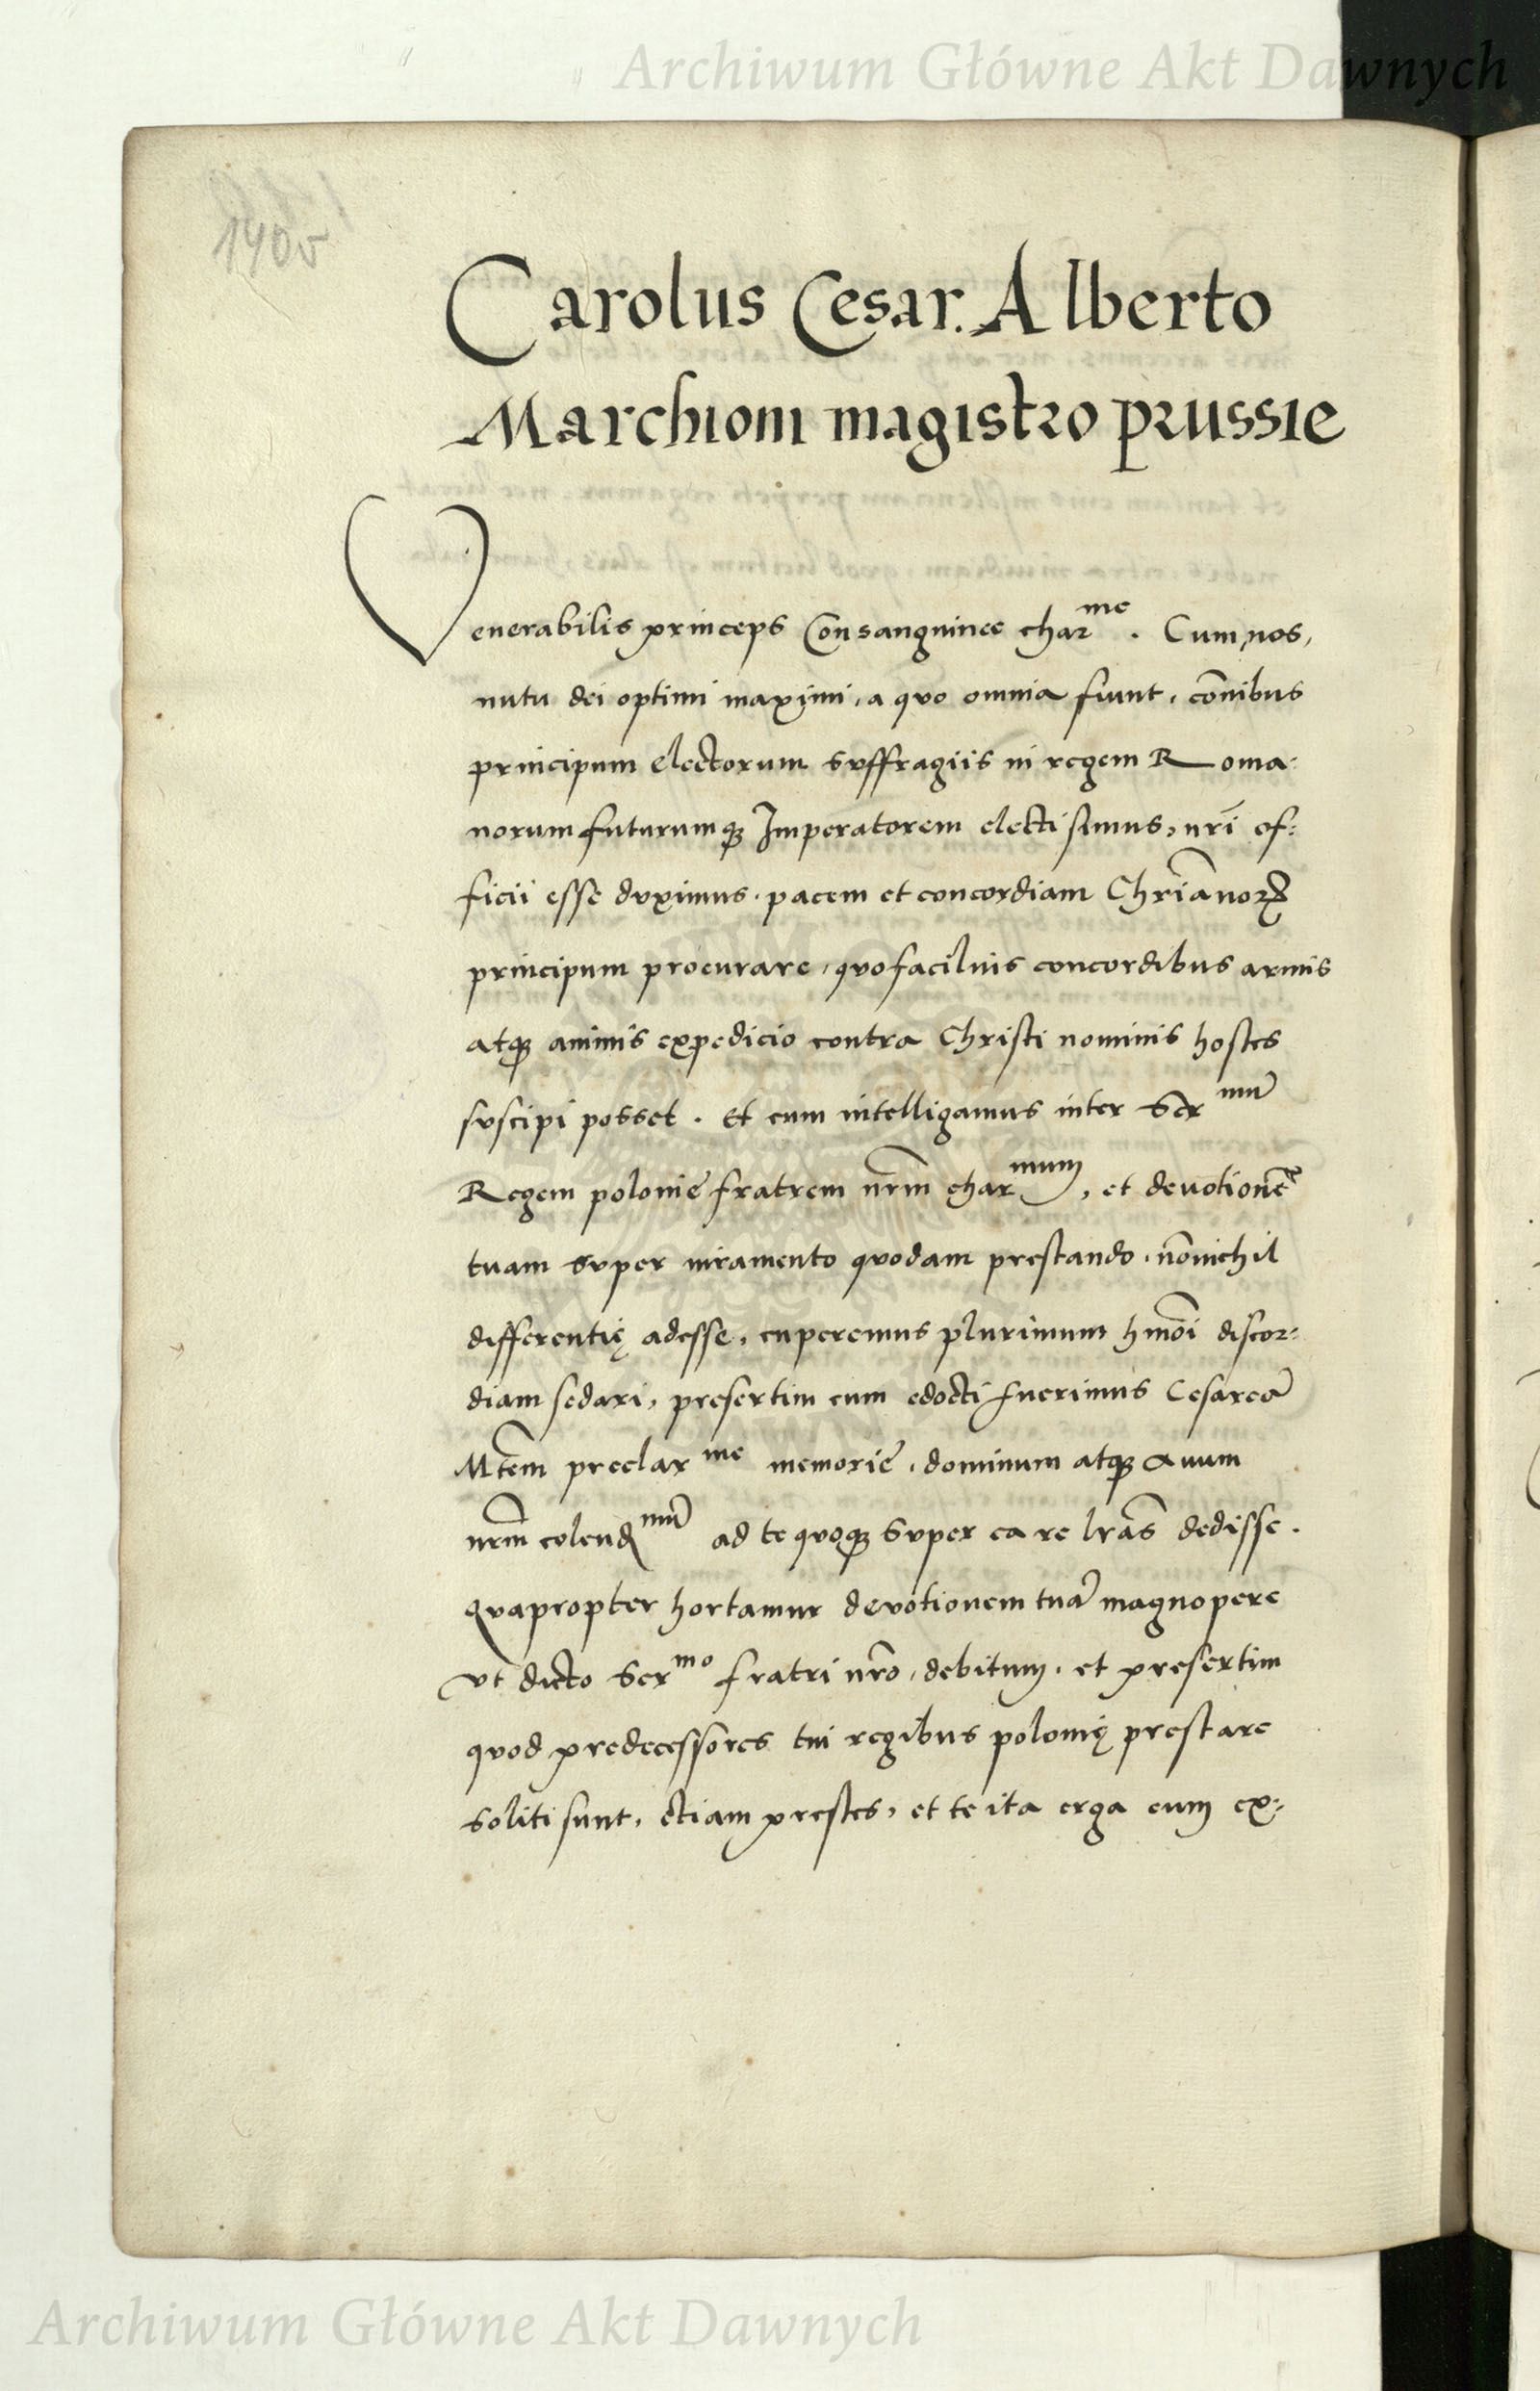 Archiwum Główne Akt Dawnych
140v
Carolus Cesar. Alberto
Marchioni magistro prussie
Venerabilis princeps Consanguinee charme. Cum, nos,
nutu dei optimi maximi, a quo omnia fiunt, cōnibus
principum electorum suffragiis in regem Roma:
norum futurumqꝫ Imperatorem electi simus, nrī of:
ficii esse duximus. pacem et concordiam Chrīanoꝝ
principum procurare, quo facilius concordibus armis
atqꝫ animis expedicio contra Christi nominis hostes
suscipi posset. Et cum intelligamus inter Sermū
Regem polonie fratrem nrm̄ charmum, et deuotionē
tuam super iuramento quodam prestando, nōnichil
differentię adesse, cuperemus plurimum hmōi discor:
diam sedari, presertim cum edocti fuerimus Cesareā
Mtēm preclarme memorie, dominum atqꝫ auum
nrm̄ colendmū ad te quoqꝫ super ea re lrās dedisse.
Quapropter hortamur deuotionem tuā magnopere
vt dicto Sermo fratri nrō, debitum, et presertim
quod predecessores tui regibus polonię prestare
soliti sunt, etiam prestes, et te ita erga eum ex:
Archiwum Główne Akt Dawnych